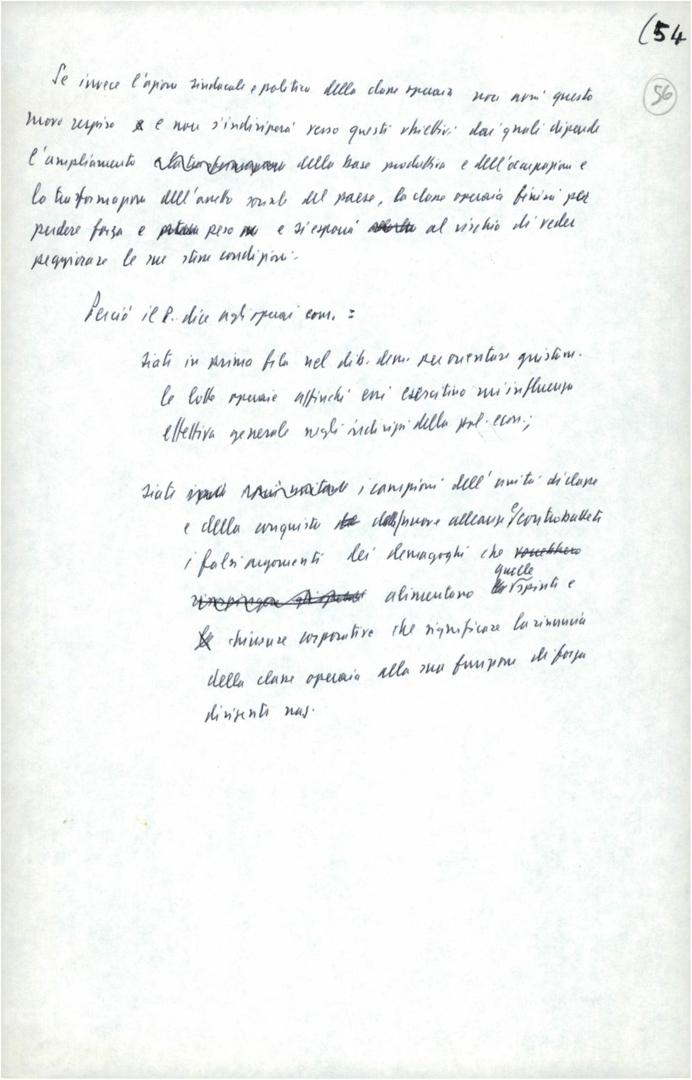 (54
56
Se invece l'azione sindacale e politica della classe operaia non avrà questo
nuovo respiro e non s'indirizzerà verso questi obiettivi dai quali dipende
l'ampliamento e la trasformazione della base produttiva e dell'occupazione e
la trasformazione dell'assetto sociale del paese, la classe operaia finirà per
perdere forza e potere peso e si esporrà al rischio di veder
peggiorare le sue stesse condizioni.
Perciò il P. dice agli operai com. :
siate in prima fila nel dib. dem. per orientare
le lotte operaie affinché essi esercitino un'influenza
effettiva generale negli indirizzi della pol. econ.;
siate i campioni dell'unità di classe
e della conquista di nuove alleanze e controbattete
i falsi argomenti dei demagoghi che vorrebbero
quelle
alimentano spinte e
chiusure corporative che significare la rinuncia
della classe operaia alla sua funzione di forza
dirigente naz.